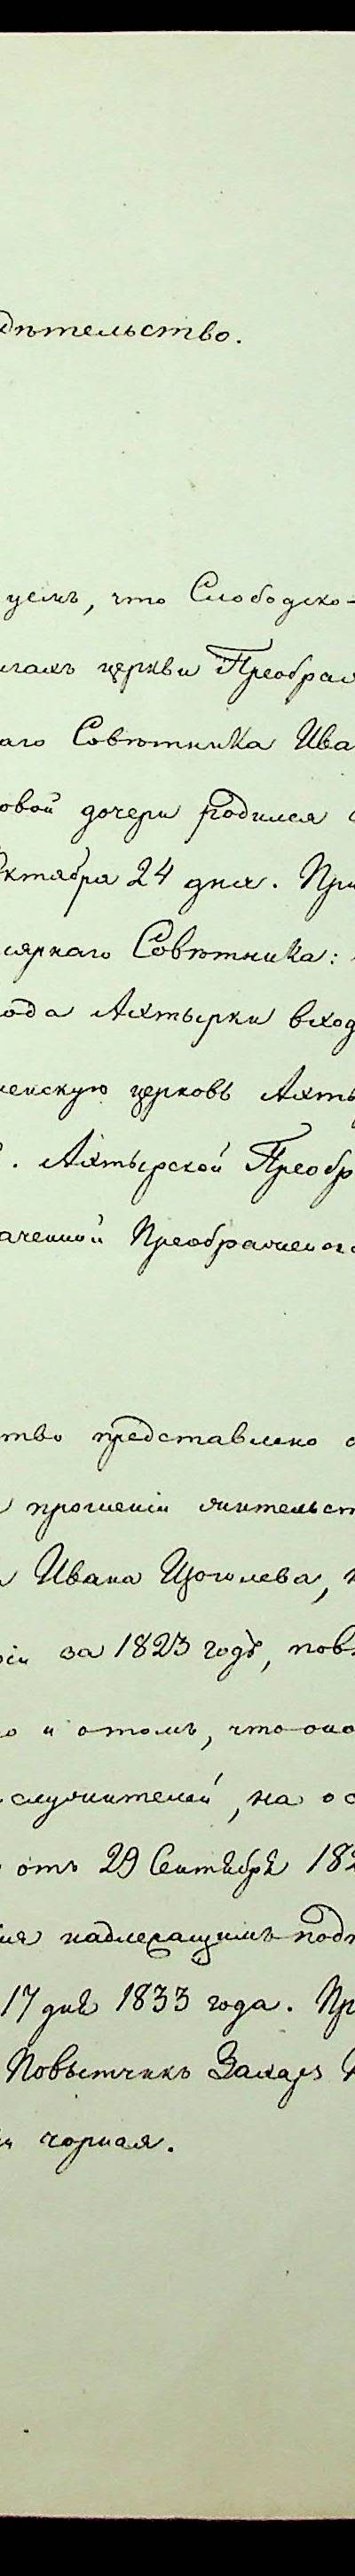 дѣтельство.
уемъ, что Слободско-
игахъ церкви Преображ
аго Совѣтника Ива
овой дочери родился
Октября 24 дня. При
лярнаго Совѣтника:
ода Ахтырки вход
ческую церковь Ахты
. Ахтырской Преобр
аченной Преображенск
тво представлено
прошеніи жительст
Ивана Щоголева,
ріи за 1823 годъ, пов
о и отомъ, что оно
служителей, на ос
отъ 29 Сентября 182
ія надлежащимъ подп
17 дня 1833 года. Пр
Повытчикъ Захаръ
чорная.